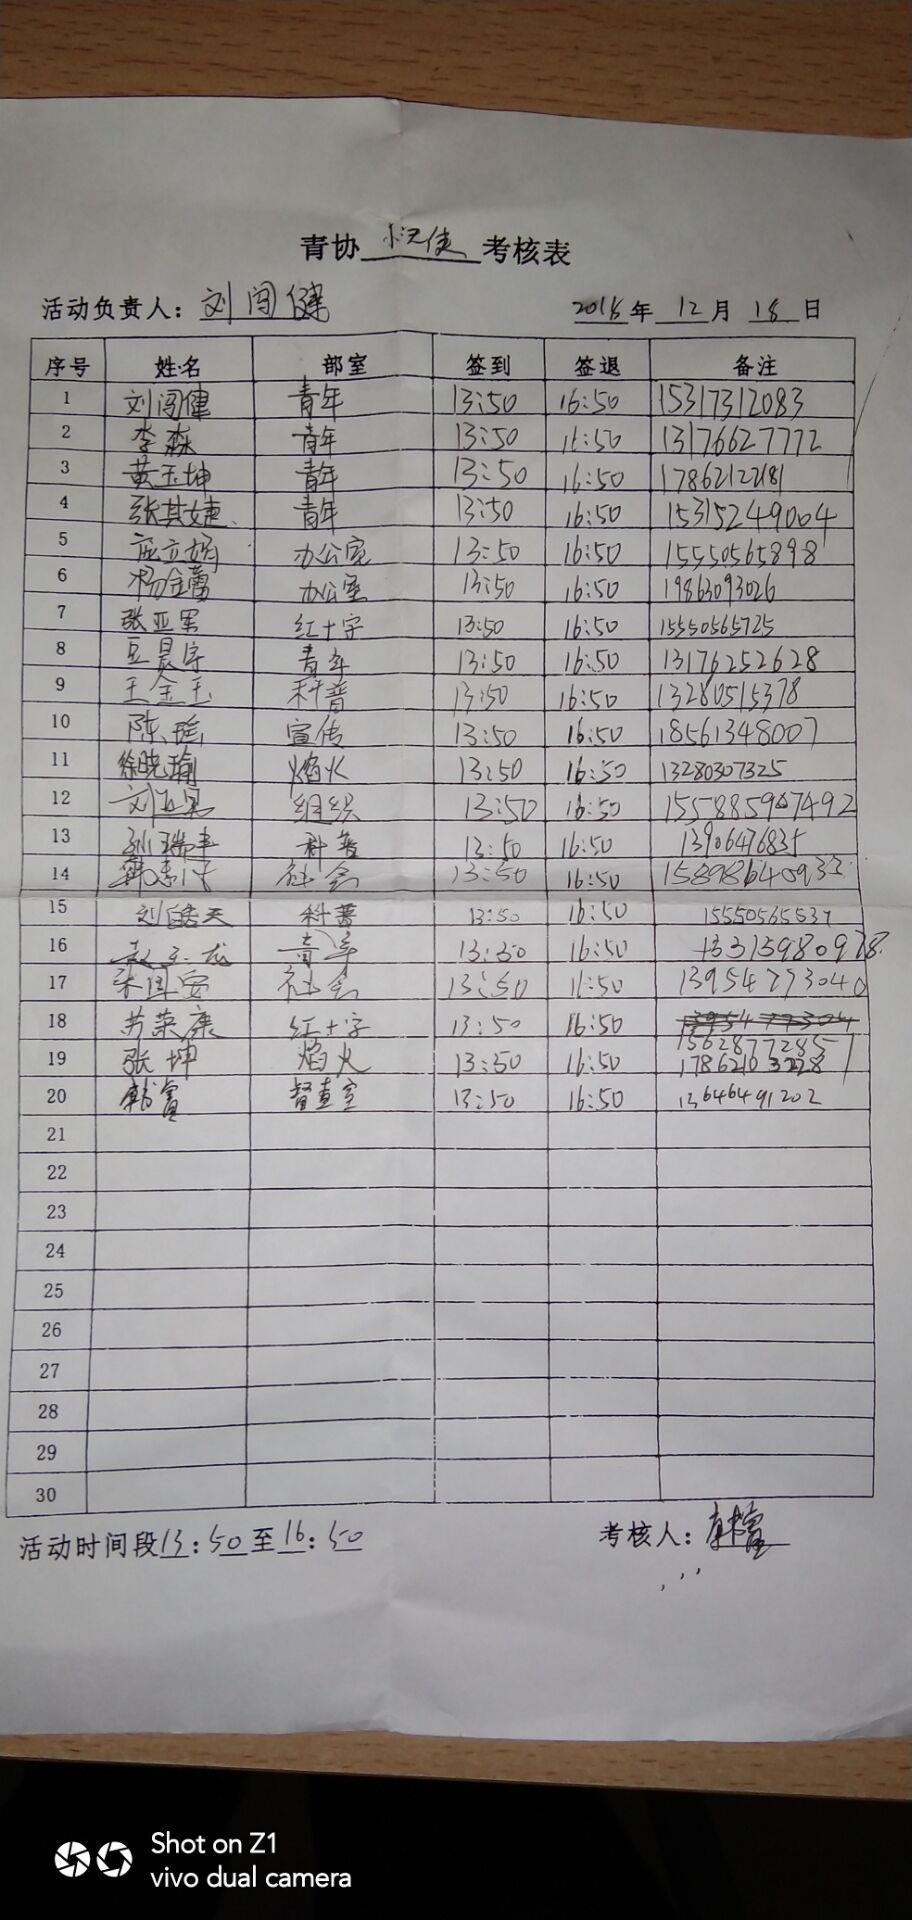 青协 考核表
活动负责人：刘闯健 2018年 12月 18日
序号 姓名 部室 签到 签退 备注
1 刘闯健 青年 13:50 16:50 15317312083
2 李森 青年 13:50 16:50 13176627772
3 黄玉坤 青年 13:50 16:50 17862122181
4 张其婕 青年 13:50 16:50 15315249004
5 办公室 13:50 16:50 15550565898
6 杨金蕾 办公室 13:50 16:50 19863093026
7 张亚军 红十字 13:50 16:50 15550565725
8 豆晨宇 青年 13:50 16:50 13176252628
9 王金玉 科普 13:50 16:50 13280515378
10 陈瑶 宣传 13:50 16:50 18561348007
11 徐晓瑜 焰火 13:50 16:50 13280307325
12 组织 13:50 16:50
13 孙瑞丰 科普 13:50 16:50 13906476835
14 社会 13:50 16:50
15 刘皓天 科普 13:50 16:50 15550565537
16 青年 13:50 16:50
17 宋国安 社会 13:50 16:50 13954773040
18 苏荣康 红十字 13:50 16:50 15628772857
19 张坤 焰火 13:50 16:50 17862103228
20 韩富 督查室 13:50 16:50 13646491202
21
22
23
24
25
26
27
28
29
30
活动时间段13:50至16:50 考核人：韩富
Shot on Z1
vivo dual camera